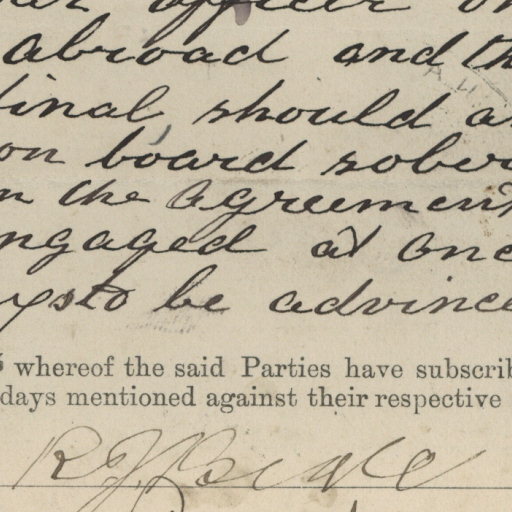 officer on
abroad and th
final should a
on board sober
n the agreement
ngaged at onc
ys to be advince
whereof the said Parties have subscrib
days mentioned against their respective